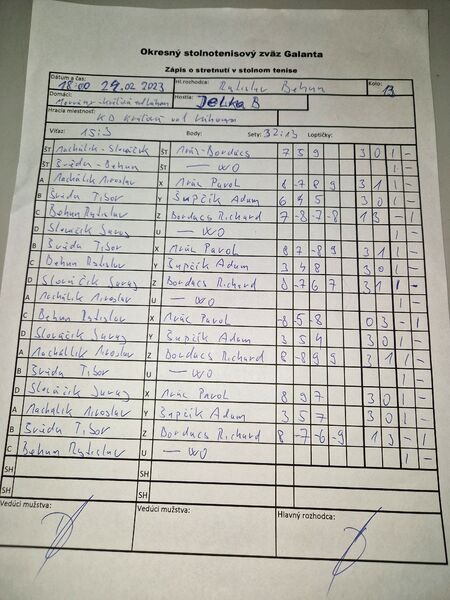 Okresný stolnotenisový zväz Galanta
Zápis o stretnutí v stolnom tenise
Dátum a čas: Hl.rozhodca: Kolo:
18:00 24.02 2023 Ratislav Behun 13
Domáci: Hostia:
Jelka B
Hracia miestnosť:
Víťaz: 15:3 Body: Sety: 32:13 Loptičky:
ŠT Machálik-Slováčik ŠT Arva-Bordacs 7 5 9 3 0 1 -
ŠT Bráda-Behun ŠT — WO 1 -
A Machálik Miroslav X Pavol 8 -7 8 9 3 1 1 -
B Bráda Tibor Y Šupčík Adam 6 4 5 3 0 1 -
C Behun Ratislav Z Bordacs Richard 7 -8 -7 -8 1 3 - 1
D Slováčik Juraj U — WO 1 -
B Bráda Tibor X Pavol 8 7 -8 9 3 1 1 -
C Behun Ratislav Y Šupčík Adam 3 4 8 3 0 1 -
D Slováčik Juraj Z Bordacs Richard 8 -7 6 7 3 1 1 -
A Machálik Miroslav U — WO 1 -
C Behun Ratislav X Pavol -8 -5 -8 0 3 - 1
D Slováčik Juraj Y Šupčík Adam 3 5 4 3 0 1 -
A Machálik Miroslav Z Bordacs Richard 8 -8 9 9 3 1 1 -
B Bráda Tibor U — WO 1 -
D Slováčik Juraj X Pavol 8 9 7 3 0 1 -
A Machálik Miroslav Y Šupčík Adam 3 5 7 3 0 1 -
B Bráda Tibor Z Bordacs Richard 8 -7 -6 -9 1 3 - 1
C Behun Ratislav U — WO 1 -
SH SH
SH SH
Vedúci mužstva: Vedúci mužstva: Hlavný rozhodca: